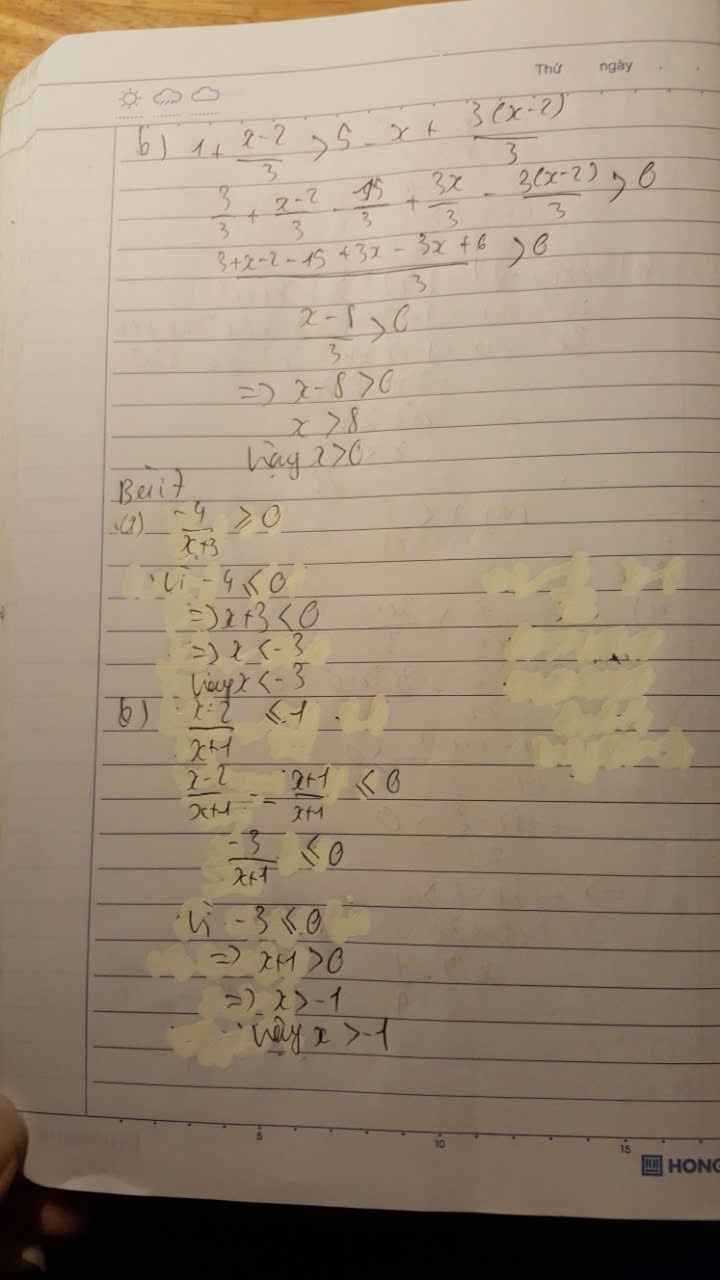 Thứ ngày
b) 1 + \frac{x-2}{3} > 5 - x + \frac{3(x-2)}{3}
\frac{3}{3} + \frac{x-2}{3} - \frac{15}{3} + \frac{3x}{3} - \frac{3(x-2)}{3} > 0
\frac{3+x-2-15+3x-3x+6}{3} > 0
\frac{x-8}{3} > 0
=> x-8 > 0
x > 8
Vậy x > 0
Bài 7
a) \frac{-4}{x+3} ≥ 0
Vì -4 ≤ 0
=> x+3 < 0
=> x < -3
Vậy x < -3
b) \frac{x-2}{x+1} ≤ 1
\frac{x-2}{x+1} - \frac{x+1}{x+1} ≤ 0
\frac{-3}{x+1} ≤ 0
Vì -3 ≤ 0
=> x+1 > 0
=> x > -1
Vậy x > -1
5 10 15
HONG